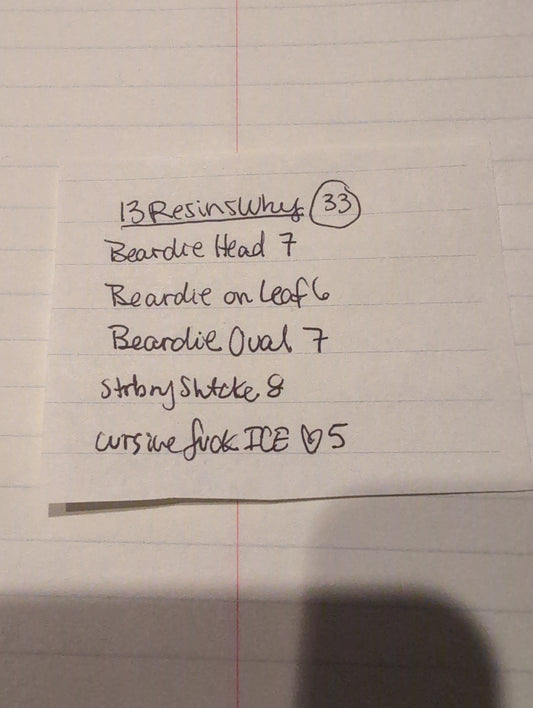 13ResinsWhy 33
Beardie Head 7
Beardie on Leaf 6
Beardie Oval 7
Strbry Shtcke 8
cursive fuck ICE ♡ 5